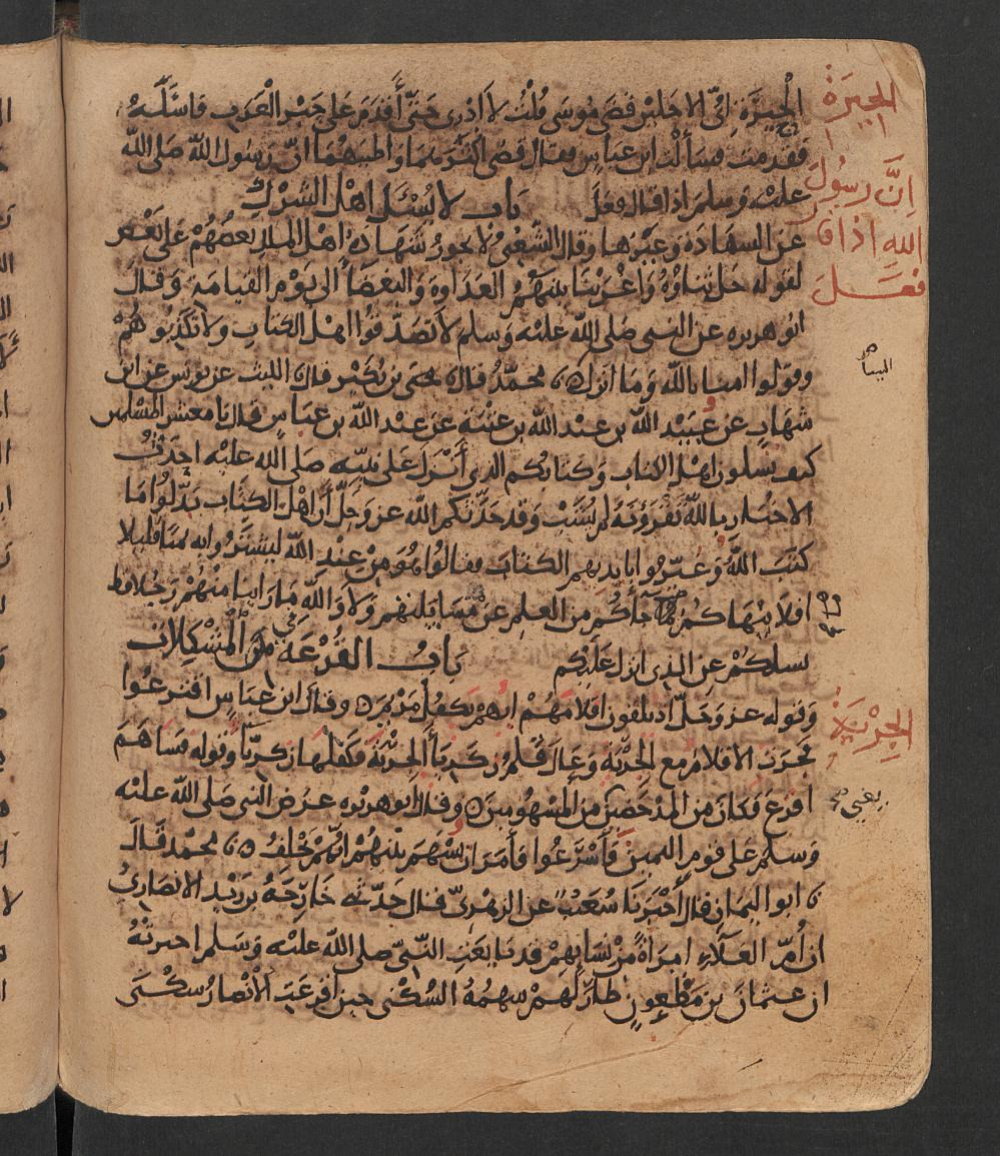 الحِيرَة اىّ الاجلين قضى موسى قلت لا ادرى حَتّى أقدَمَ على حَبْر العَرَب فاسْئَلَهُ
فقدمت فسألت ابن عباس فقال قضى اكثرهما واطيبهما انّ رسول الله صَلى الله
عليْه وَسلم اذا قال فعَلَ باب لا يُسْئَل اهْل الشرك
عن الشهادَة وغيْرها وقال الشعْبىُ لا تجوز شهَادَة اهْل الملل بعضهُمْ على بَعْض
لقوله جل ثناؤهُ وَاغْرَيْنَا بينهُمُ العَدَاوة وَالبغضَا الى يَوْم القيامَة وَقال
ابو هريره عن النبى صَلى الله عليْه وَسلم لا تصَدّقوا اهْل الكتاب ولا تكَذّبوهُمْ
وقولوا امنا بالله وَمَا انزل ں محمّدٌ قال ں يحيى بن بُكَيْر قال ں الليث عن يونس عن ابن
شهَاب عن عُبَيْد الله بن عبْد الله بن عتْبَة عن عبْد الله بن عبَاس قال يا معشر المسْلمين
كيف تسَلون اهْل الكتاب وَكتابُكم الذى أنْزِل على نبيّه صَلى الله عليْه احْدَثُ
الاخبَار بالله تقرَؤنَهُ لم يُشَبْ وَقد حَدّثكم الله عز وَجَلّ أنّ اهْل الكتَاب بَدّلُوا مَا
كتَبَ اللهُ وَغيّروا بايديهم الكتابَ فقالوا هُوَ مِنْ عِنْد الله ليَشتَرُوا به ثمَنا قليلا
افلا ينْهَاكُمْ مَا جَأكُم من العِلم عن مسَايلتهم وَلا وَالله مَا رَاينا منْهُمْ رَجُلا قط
يسلكُمْ عن الذى انزل عَليْكم بابُ القرْعَة فى المُشكِلات
وَقوله عز وَجَلّ اذ يلقون اقلامَهُمْ ايهُم يَكفُلُ مَرْيَمَ ں وقال ابن عبَاس اقترعُوا
فجرت الاقلام مع الجِرْيَة وَعَال قلَمُ زكَرِيّا الجرْيَة فكفلهَا زكريّا وقوله فسَاهَمَ
اقرعَ فكان من المدحَضين من المسْهُومين ں وقال ابو هريره عرَض النبى صَلى الله عليْه
وَسلم على قوم اليمين فأسْرَعُوا فأمَرَ ان يُسْهَمَ بينهُمْ ايّهُمْ يَحْلِفُ ں محمّد قَال
ں ابو اليمان قال أخبَرنَا شُعَيْبٌ عن الزهْرىّ قال حَدّثنى خَارِجَةُ بن زيْد الانصارِىُّ
ان أُمّ العَلَاءِ امرَاةً مِنْ نسَايهمْ قد بَايعَتِ النّبىّ صلى الله عليْه وَسَلم اخبرتْهُ
ان عثمان بن مَظْعُونٍ طارَ لهمْ سهمُهُ السُكْنى حين اقرعَتِ الأنْصارُ سكنى
الحِيرَة
اِنَّ رسُول
الله اذا قال
فعَلَ
الجِرْيَة
يعنى